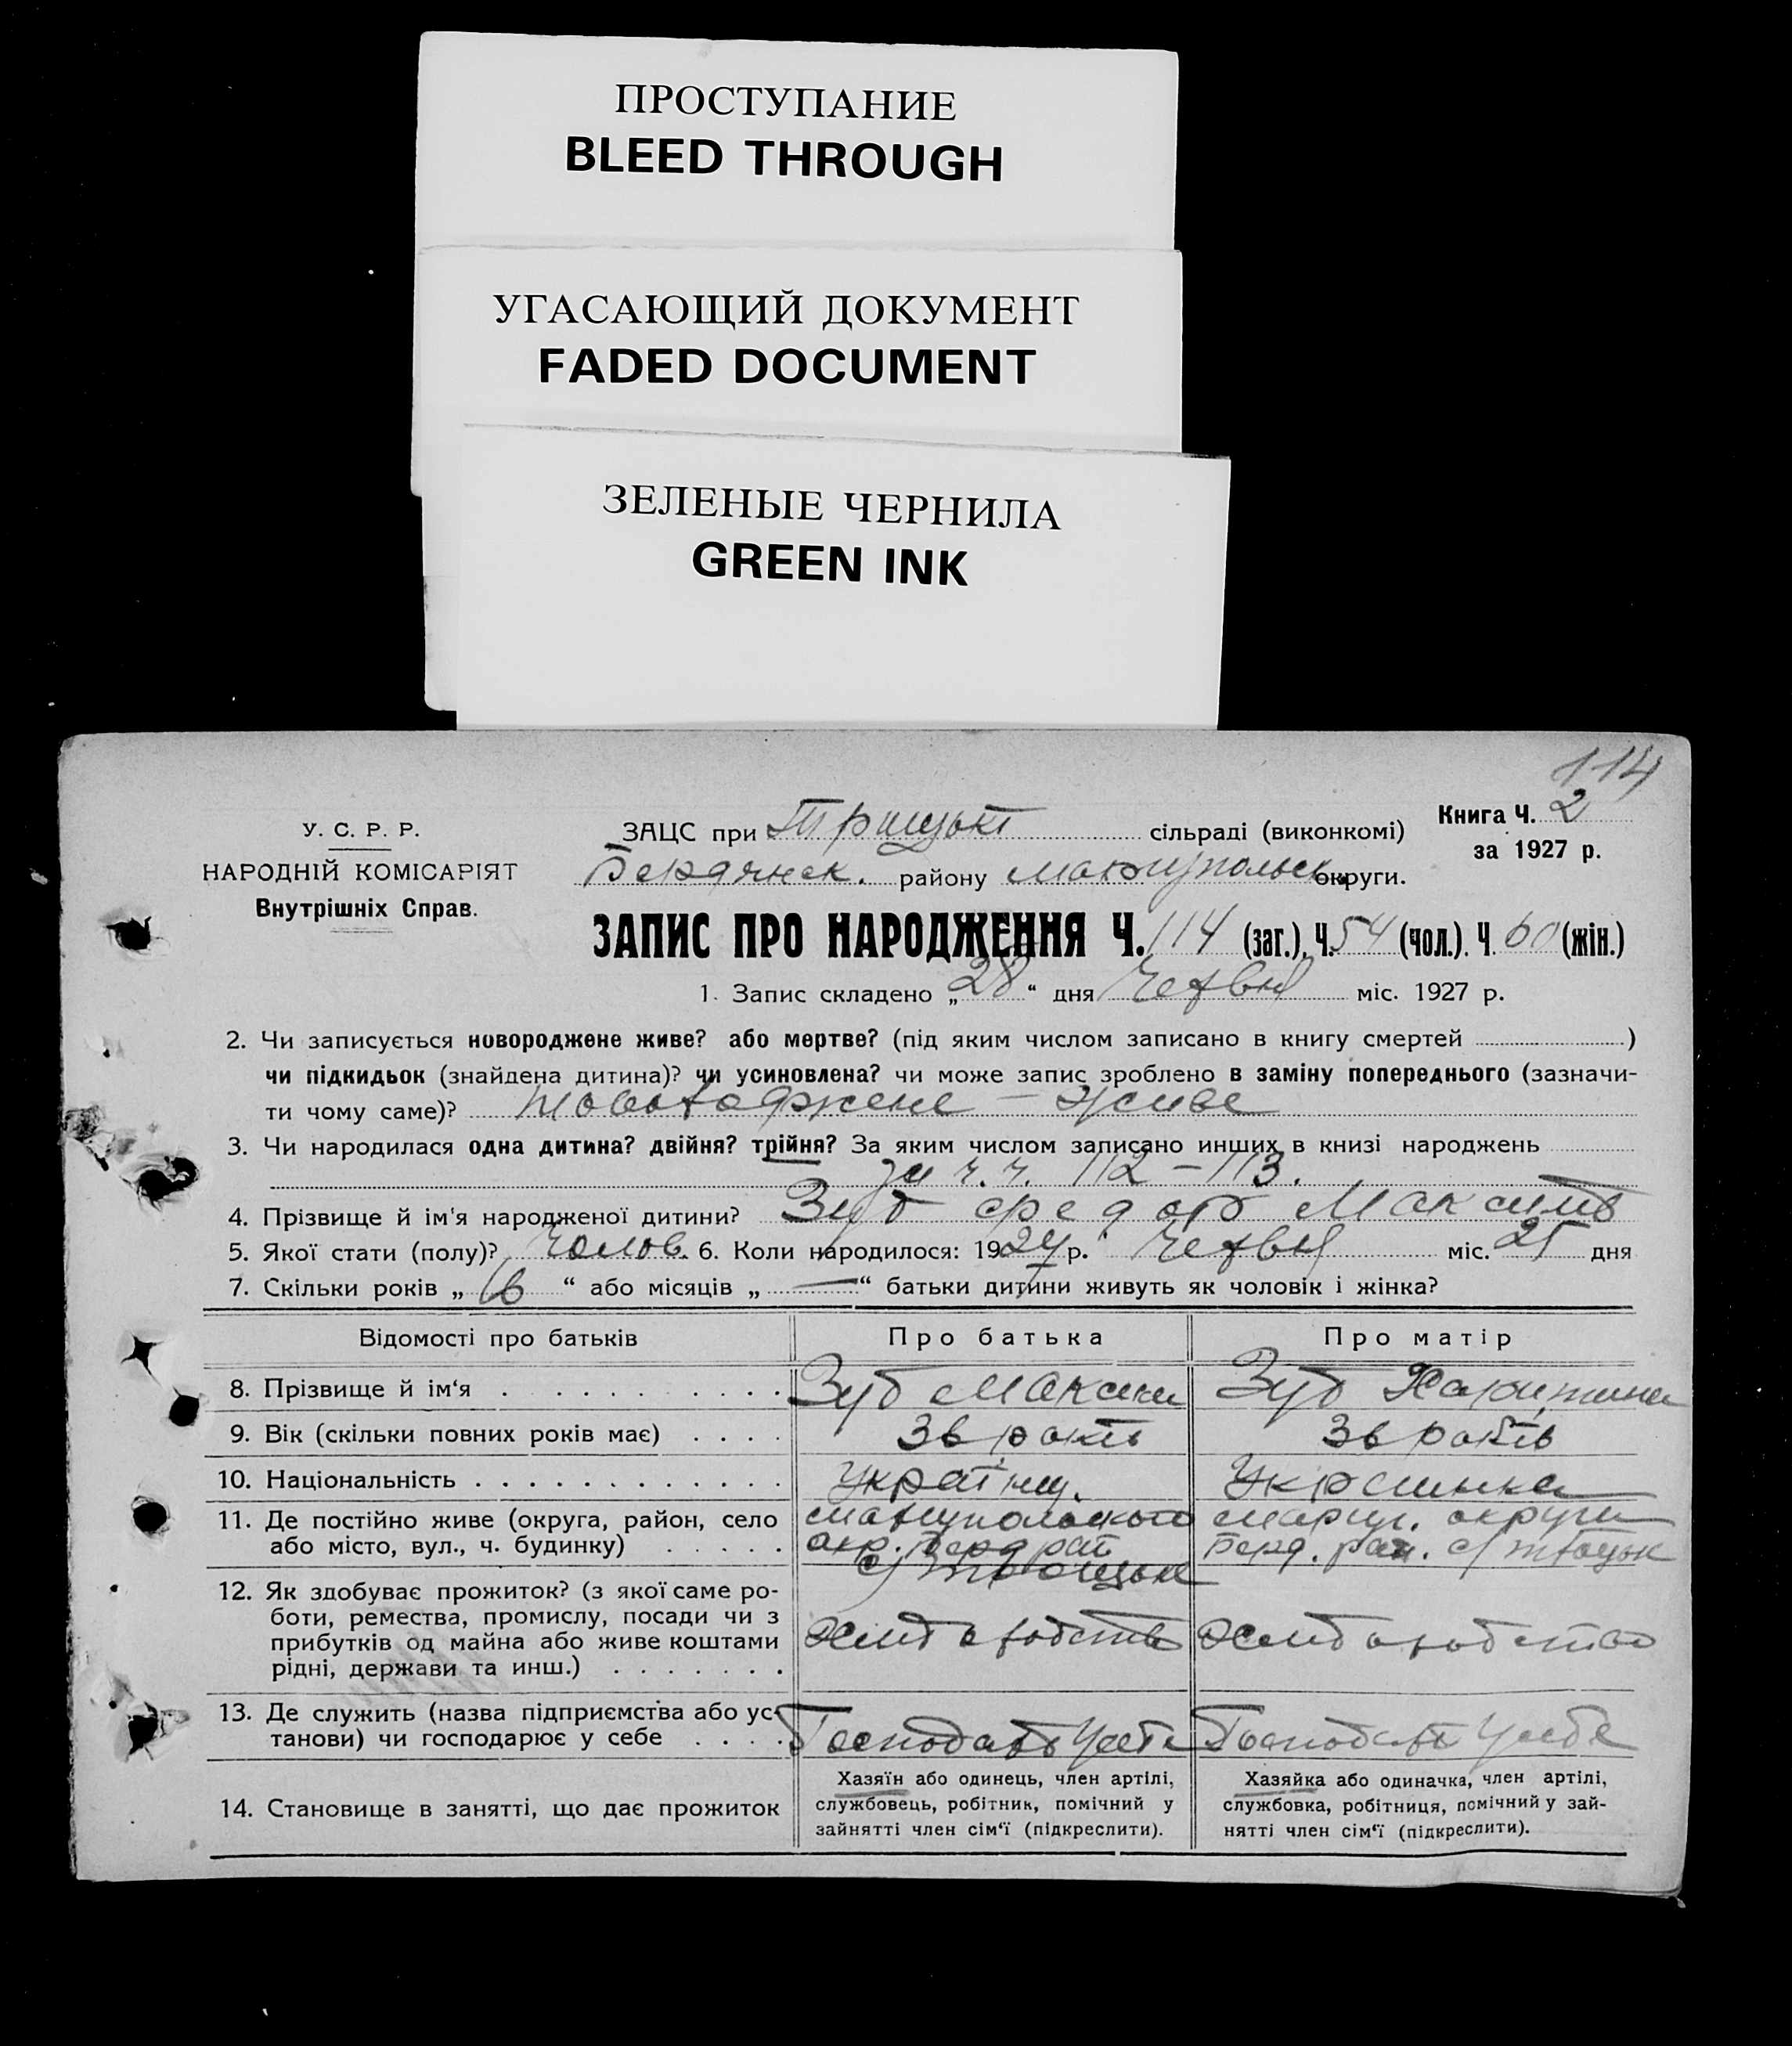 ПРОСТУПАНИЕ
BLEED THROUGH
УГАСАЮЩИЙ ДОКУМЕНТ
FADED DOCUMENT
ЗЕЛЕНЫЕ ЧЕРНИЛА
GREEN INK
114
У. С. Р. Р.
НАРОДНІЙ КОМІСАРІЯТ
Внутрішніх Справ.
Книга Ч. 2
за 1927 р.
ЗАЦС при сільраді (виконкомі)
Бердянск. району Маріупольськ. округи.
ЗАПИС ПРО НАРОДЖЕННЯ Ч. 114 (заг.). Ч. 54 (чол.). Ч. 60 (жін.)
1. Запис складено „ 28 “ дня Червня міс. 1927 р.
2. Чи записується новороджене живе? або мертве? (під яким числом записано в книгу смертей )
чи підкидьок (знайдена дитина)? чи усиновлена? чи може запис зроблено в заміну попереднього (зазначи-
ти чому саме)? Новороджене – живе
3. Чи народилася одна дитина? двійня? трійня? За яким числом записано инших в книзі народжень
за ч. ч. 112 – 113.
4. Прізвище й ім'я народженої дитини? Зуб Федор Максимів
5. Якої стати (полу)? Чолов. 6. Коли народилося: 1927 р. Червня міс. 25 дня
7. Скільки років „ “ або місяців „ — “ батьки дитини живуть як чоловік і жінка?
Відомості про батьків
Про батька
Про матір
8. Прізвище й ім‘я . . . . . . . . . .
Зуб Максим
Зуб Харитина
9. Вік (скільки повних років має) . . . .
36 років
36 років
10. Національність . . . . . . . . . . . .
Україн.
Украинка
11. Де постійно живе (округа, район, село
або місто, вул., ч. будинку) . . . . .
Маріупольского
окр. Берд рай
с/
Маріуп. округи
Берд. рай. с/
12. Як здобуває прожиток? (з якої саме ро-
боти, ремества, промислу, посади чи з
прибутків од майна або живе коштами
рідні, держави та инш.) . . . . . . .
Хліборобство
Хліборобство
13. Де служить (назва підприємства або ус-
танови) чи господарює у себе . . . .
Господарь у себе
Господарь у себе
14. Становище в занятті, що дає прожиток
Хазяїн або одинець, член артілі,
службовець, робітник, помічний у
зайнятті член сім‘ї (підкреслити).
Хазяйка або одиначка, член артілі,
службовка, робітниця, помічний у зай-
нятті член сім‘ї (підкреслити).